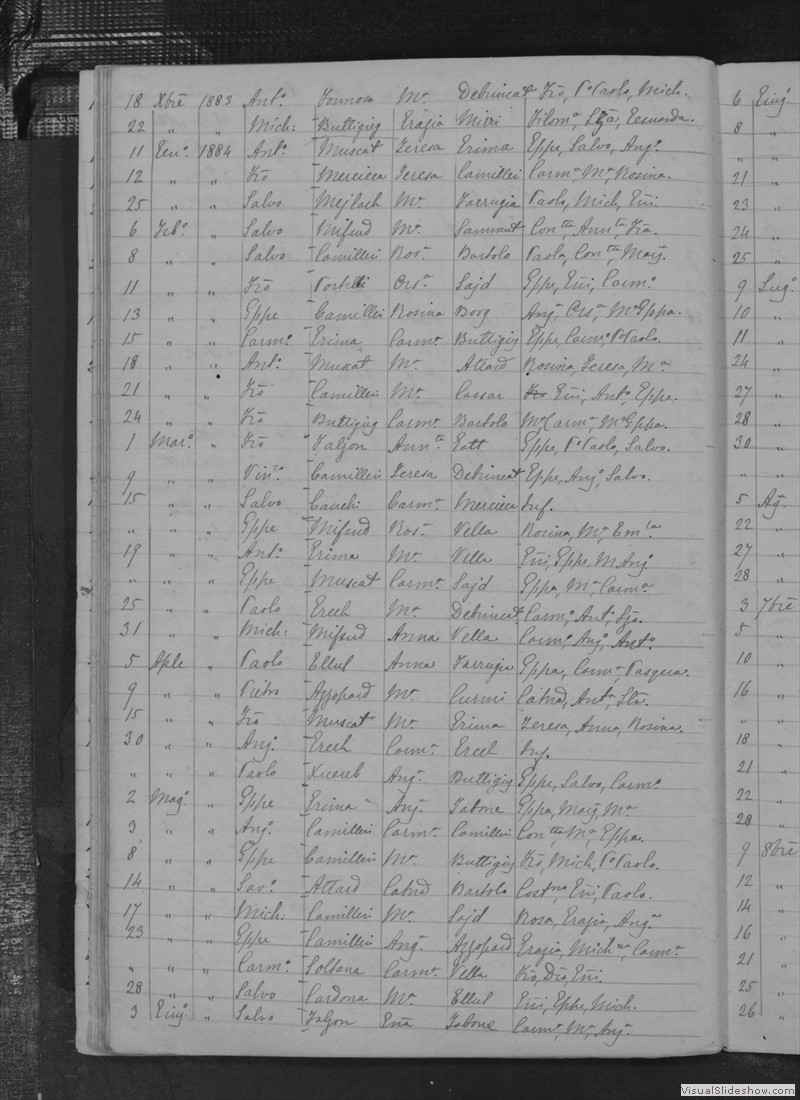 18 Xbre 1883 Ant.o Formosa M.a Debrincat Fco, P.o Paolo, Mich.
22 " " Mich: Buttigieg Grazia Mizzi Filom.a, Lza,
11 Gen.o 1884 Ant.o Muscat Teresa Grima Gppe, Salvo, Ang.o
12 " " Fco Mercieca Teresa Camilleri Carm.a M.a Rosina.
25 " " Salvo Mejlach M.a Farrugia Paolo, Mich, Gni
6 Feb.o " Salvo Mifsud M.a Sammut Con.ta Ann.ta Fca.
8 " " Salvo Camilleri Ros.a Bartolo Paola, Con.ta Marj.
11 " " Fco Portelli Ors.a Sajd Gppe, Gni, Carm.o
13 " " Gppe Camilleri Rosina Borg Ang.a Ors.a M.a Gppa.
15 " " Carm.o Grima Carm.a Buttigieg Gppe, Carm.o P.o Paolo.
18 " " Ant.o Muscat M.a Attard Rosina, Teresa, M.a
21 " " Fco Camilleri M.a Cassar Gni, Ant.o, Gppe.
24 " " Fco Buttigieg Carm.a Bartolo M.a Carm.a M.a Gppa.
1 Mar.o " Fco Faljon Ann.ta Gatt Gppe, P.o Paolo, Salvo.
9 " " Vin.zo Camilleri Teresa Debrincat Gppe, Ang.o, Salvo.
15 " " Salvo Cauchi Carm.a Mercieca Inf.
" " " Gppe Mifsud Ros.a Vella Rosina, M.a Em.la
19 " " Ant.o Grima M.a Vella Gni, Gppe, M. Ang.o
" " " Gppe Muscat Carm.a Sajd Gppa, M.a Carm.a
25 " " Paolo Grech M.a Debrincat Carm.o, Ant.o,
31 " " Mich: Mifsud Anna Vella Carm.o Ang.o Ant.o
5 Aple " Paolo Ellul Anna Farrugia Gppa, Carm.a Pasqua.
9 " " Pietro Azzopard M.a Curmi Catnd, Ant.a,
15 " " Fco Muscat M.a Grima Teresa, Anna, Rosina.
30 " " Ang.o Grech Carm.a Grech Inf.
" " " Paolo Xuereb Ang.a Buttigieg Gppe, Salvo, Carm.o
2 Mag.o " Gppe Grima Ang.a Tabone Gppa, Marj, M.a
3 " " Ang.o Camilleri Carm.a Camilleri Con.ta, M.a, Gppa.
8 " " Gppe Camilleri M.a Buttigieg Fco, Mich, P.o Paolo.
14 " " Sav.o Attard Catnd Bartolo Cost.no, Gni, Paolo.
17 " " Mich: Camilleri M.a Sajd Rosa, Grazia, Ang.a
23 " " Gppe Camilleri Ang.a Azzopard Grazia, Mich.na, Carm.a
" " " Carm.o Soltana Carm.a Vella Fco, Gni.
28 " " Salvo Cardona M.a Ellul Gni, Gppe, Mich.
3 Giug.o " Salvo Faljon Gna Tabone Carm.a, M.a, Ang.a
6 Giug.o
8 "
" "
21 "
23 "
24 "
25 "
9 Lug.o
10 "
11 "
24 "
27 "
28 "
30 "
" "
5 Ag.o
22 "
27 "
28 "
3 7bre
5 "
10 "
16 "
" "
18 "
21 "
22 "
28 "
9 8bre
12 "
14 "
16 "
21 "
25 "
26 "
VisualSlideshow.com